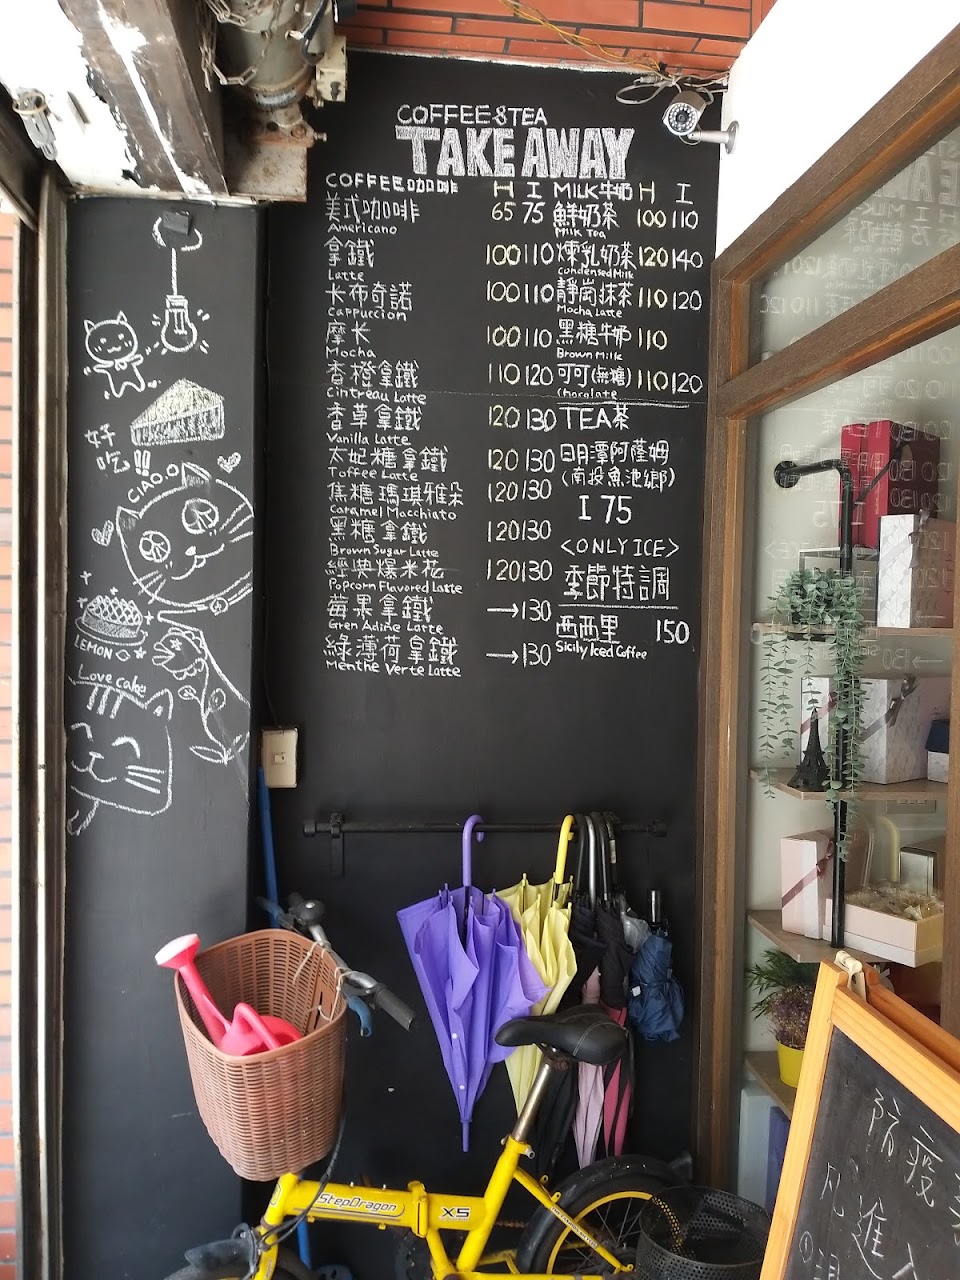 COFFEE&TEA
TAKE AWAY
COFFEE咖啡 H I
美式咖啡 65 75
Americano
拿鐵 100 110
Latte
卡布奇諾 100 110
Cappuccion
摩卡 100 110
Mocha
香橙拿鐵 110 120
Cintreau Latte
香草拿鐵 120 130
Vanilla Latte
太妃糖拿鐵 120 130
Toffee Latte
焦糖瑪琪雅朵 120 130
Caramel Macchiato
黑糖拿鐵 120 130
Brown Sugar Latte
經典爆米花 120 130
Popcorn Flavored Latte
莓果拿鐵 →130
Gren Adine Latte
綠薄荷拿鐵 →130
Menthe Verte Latte
MILK牛奶 H I
鮮奶茶 100 110
Milk Tea
煉乳奶茶 120 140
Condensed Milk
靜岡抹茶 110 120
Mocha Latte
黑糖牛奶 110
Brown Milk
可可(無糖) 110 120
Chocolate
TEA茶
日月潭阿薩姆
(南投魚池鄉)
I 75
<ONLY ICE>
季節特調
西西里 150
Sicily Iced Coffee
好吃!!
CIAO
LEMON
Love cake
StepDragon X5
防疫
凡進入
①